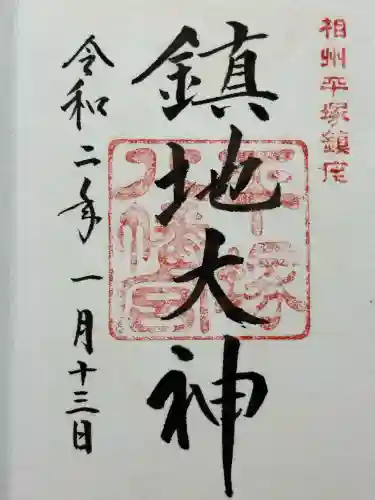 相州平塚鎮座
鎮地大神
平塚八幡宮
令和二年一月十三日